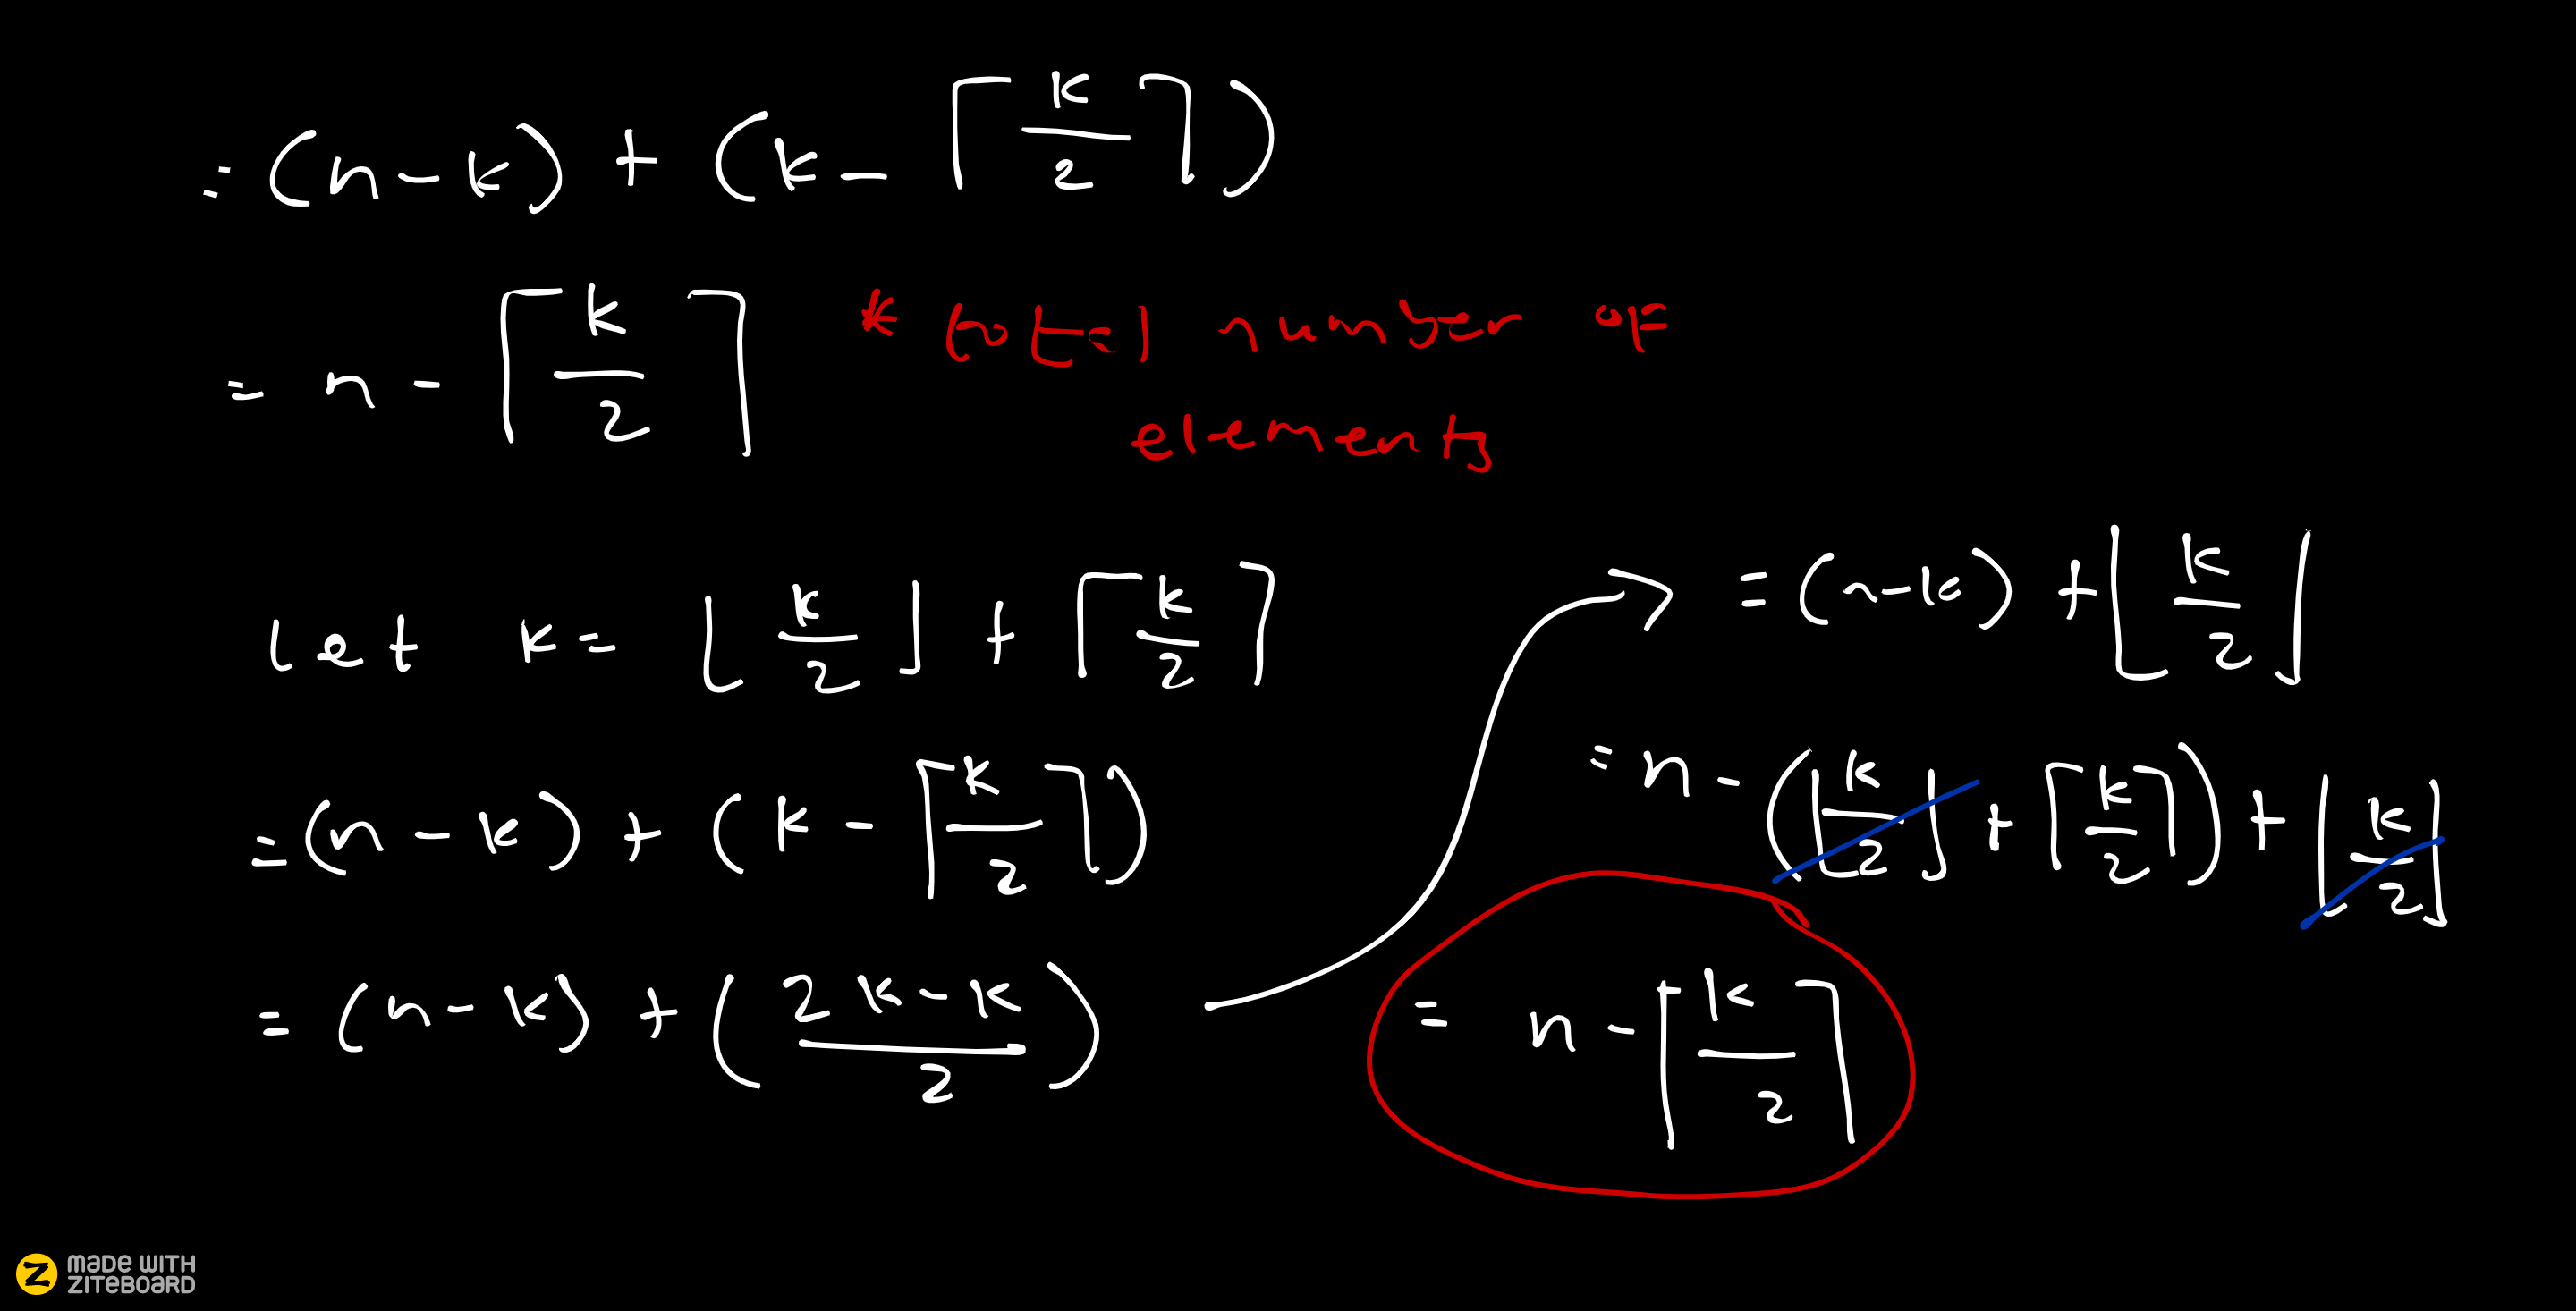 = (n - k) + (k - ⌈k/2⌉)
= n - ⌈k/2⌉ * total number of
elements
Let k = ⌊k/2⌋ + ⌈k/2⌉
= (n - k) + (k - ⌈k/2⌉)
= (n - k) + ((2k - k)/2)
= (n - k) + ⌊k/2⌋
= n - (⌊k/2⌋ + ⌈k/2⌉) + ⌊k/2⌋
= n - ⌈k/2⌉
MADE WITH
ZITEBOARD